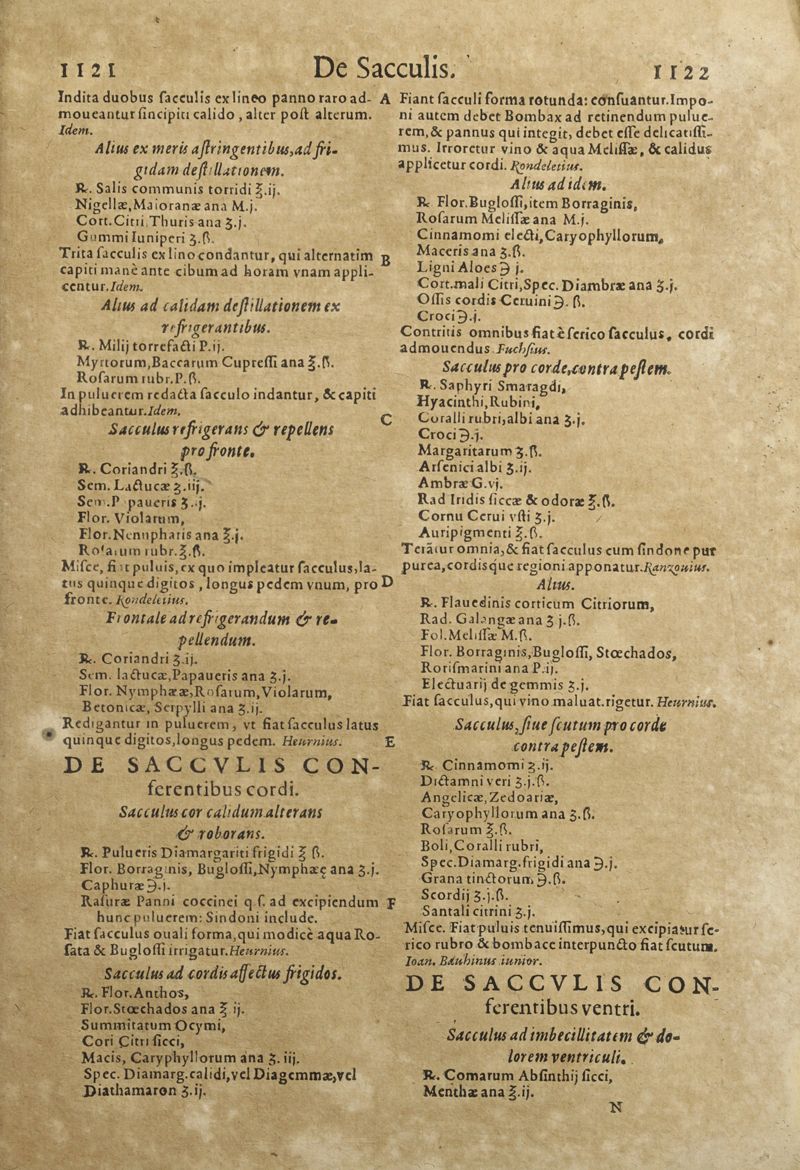 1121
De Sacculis.
1122
Indita duobus sacculis ex lineo panno raro ad-
moueantur sincipiti calido, alter post alterum.
Idem.
Alius ex meris astringentibus, ad fri-
gidam destillationem.
℞. Salis communis torridi ℥.ij.
Nigellæ, Maioranæ ana M.j.
Cort. Citri, Thuris ana ʒ.j.
Gummi Iuniperi ʒ.ß.
Trita sacculis ex lino condantur, qui alternatim
capiti manè ante cibum ad horam vnam appli-
centur. Idem.
Alius ad calidam destillationem ex
refrigerantibus.
℞. Milij torrefacti P.ij.
Myrtorum, Baccarum Cupressi ana ℥.ß.
Rosarum rubr. P.ß.
In puluerem redacta sacculo indantur, & capiti
adhibeantur. Idem.
Sacculus refrigerans & repellens
pro fronte.
℞. Coriandri ℥.ß.
Sem. Lactucæ ʒ.iij.
Sem. P paueris ʒ.ij.
Flor. Violarum,
Flor. Nenupharis ana ℥.j.
Rosarum rubr. ℥.ß.
Misce, fiat puluis, ex quo impleatur sacculus, la-
tus quinque digitos, longus pedem vnum, pro
fronte. Rondeletius.
Frontale ad refrigerandum & re-
pellendum.
℞. Coriandri ʒ.ij.
Sem. lactucæ, Papaueris ana ʒ.j.
Flor. Nymphææ, Rosarum, Violarum,
Betonicæ, Serpylli ana ʒ.ij.
Redigantur in puluerem, vt fiat sacculus latus
quinque digitos, longus pedem. Heurnius.
DE SACCVLIS CON-
ferentibus cordi.
Sacculus cor calidum alterans
& roborans.
℞. Pulueris Diamargariti frigidi ℥ ß.
Flor. Borraginis, Buglossi, Nymphæę ana ʒ.j.
Caphuræ ℈.j.
Rasuræ Panni coccinei q s. ad excipiendum
hunc puluerem: Sindoni include.
Fiat sacculus ouali forma, qui modicè aqua Ro-
sata & Buglossi irrigatur. Heurnius.
Sacculus ad cordis affectus frigidos.
℞. Flor. Anthos,
Flor. Stœchados ana ℥ ij.
Summitatum Ocymi,
Cori Citri sicci,
Macis, Caryphyllorum ana ʒ. iij.
Spec. Diamarg. calidi, vel Diagemmæ, vel
Diathamaron ʒ.ij.
A
B
C
D
E
F
Fiant sacculi forma rotunda: confuantur. Impo-
ni autem debet Bombax ad retinendum pulue-
rem, & pannus qui integit, debet esse delicatissi-
mus. Irroretur vino & aqua Melissæ, & calidus
applicetur cordi. Rondeletius.
Alius ad idem.
℞ Flor. Buglossi, item Borraginis,
Rosarum Melissæ ana M.j.
Cinnamomi electi, Caryophyllorum,
Maceris ana ʒ.ß.
Ligni Aloes ℈ j.
Cort. mali Citri, Spec. Diambræ ana ʒ.j.
Ossis cordis Ceruini ℈. ß.
Croci ℈.j.
Contritis omnibus fiat è serico sacculus, cordi
admouendus Fuchsius.
Sacculus pro corde, contra pestem.
℞. Saphyri Smaragdi,
Hyacinthi, Rubini,
Coralli rubri, albi ana ʒ.j.
Croci ℈.j.
Margaritarum ʒ.ß.
Arsenici albi ʒ.ij.
Ambræ G.vj.
Rad Iridis siccæ & odoræ ℥.ß.
Cornu Cerui vsti ʒ.j.
Auripigmenti ℥.ß.
Terātur omnia, & fiat sacculus cum sindone pur
purea, cordisque regioni apponatur. Ranzouius.
Alius.
℞. Flauedinis corticum Citriorum,
Rad. Galangæ ana ʒ j.ß.
Fol. Melissæ M.ß.
Flor. Borraginis, Buglossi, Stœchados,
Rorismarini ana P.ij.
Electuarij de gemmis ʒ.j.
Fiat sacculus, qui vino maluat. rigetur. Heurnius.
Sacculus, siue scutum pro corde
contra pestem.
℞ Cinnamomi ʒ.ij.
Dictamni veri ʒ.j.ß.
Angelicæ, Zedoariæ,
Caryophyllorum ana ʒ.ß.
Rosarum ℥.ß.
Boli, Coralli rubri,
Spec. Diamarg. frigidi ana ℈.j.
Grana tinctorum ℈.ß.
Scordij ʒ.j.ß.
Santali citrini ʒ.j.
Misce. Fiat puluis tenuissimus, qui excipiatur se-
rico rubro & bombace interpuncto fiat scutum.
Ioan. Bauhinus iunior.
DE SACCVLIS CON-
ferentibus ventri.
Sacculus ad imbecillitatem & do-
lorem ventriculi.
℞. Comarum Absinthij sicci,
Menthæ ana ℥.ij.
N